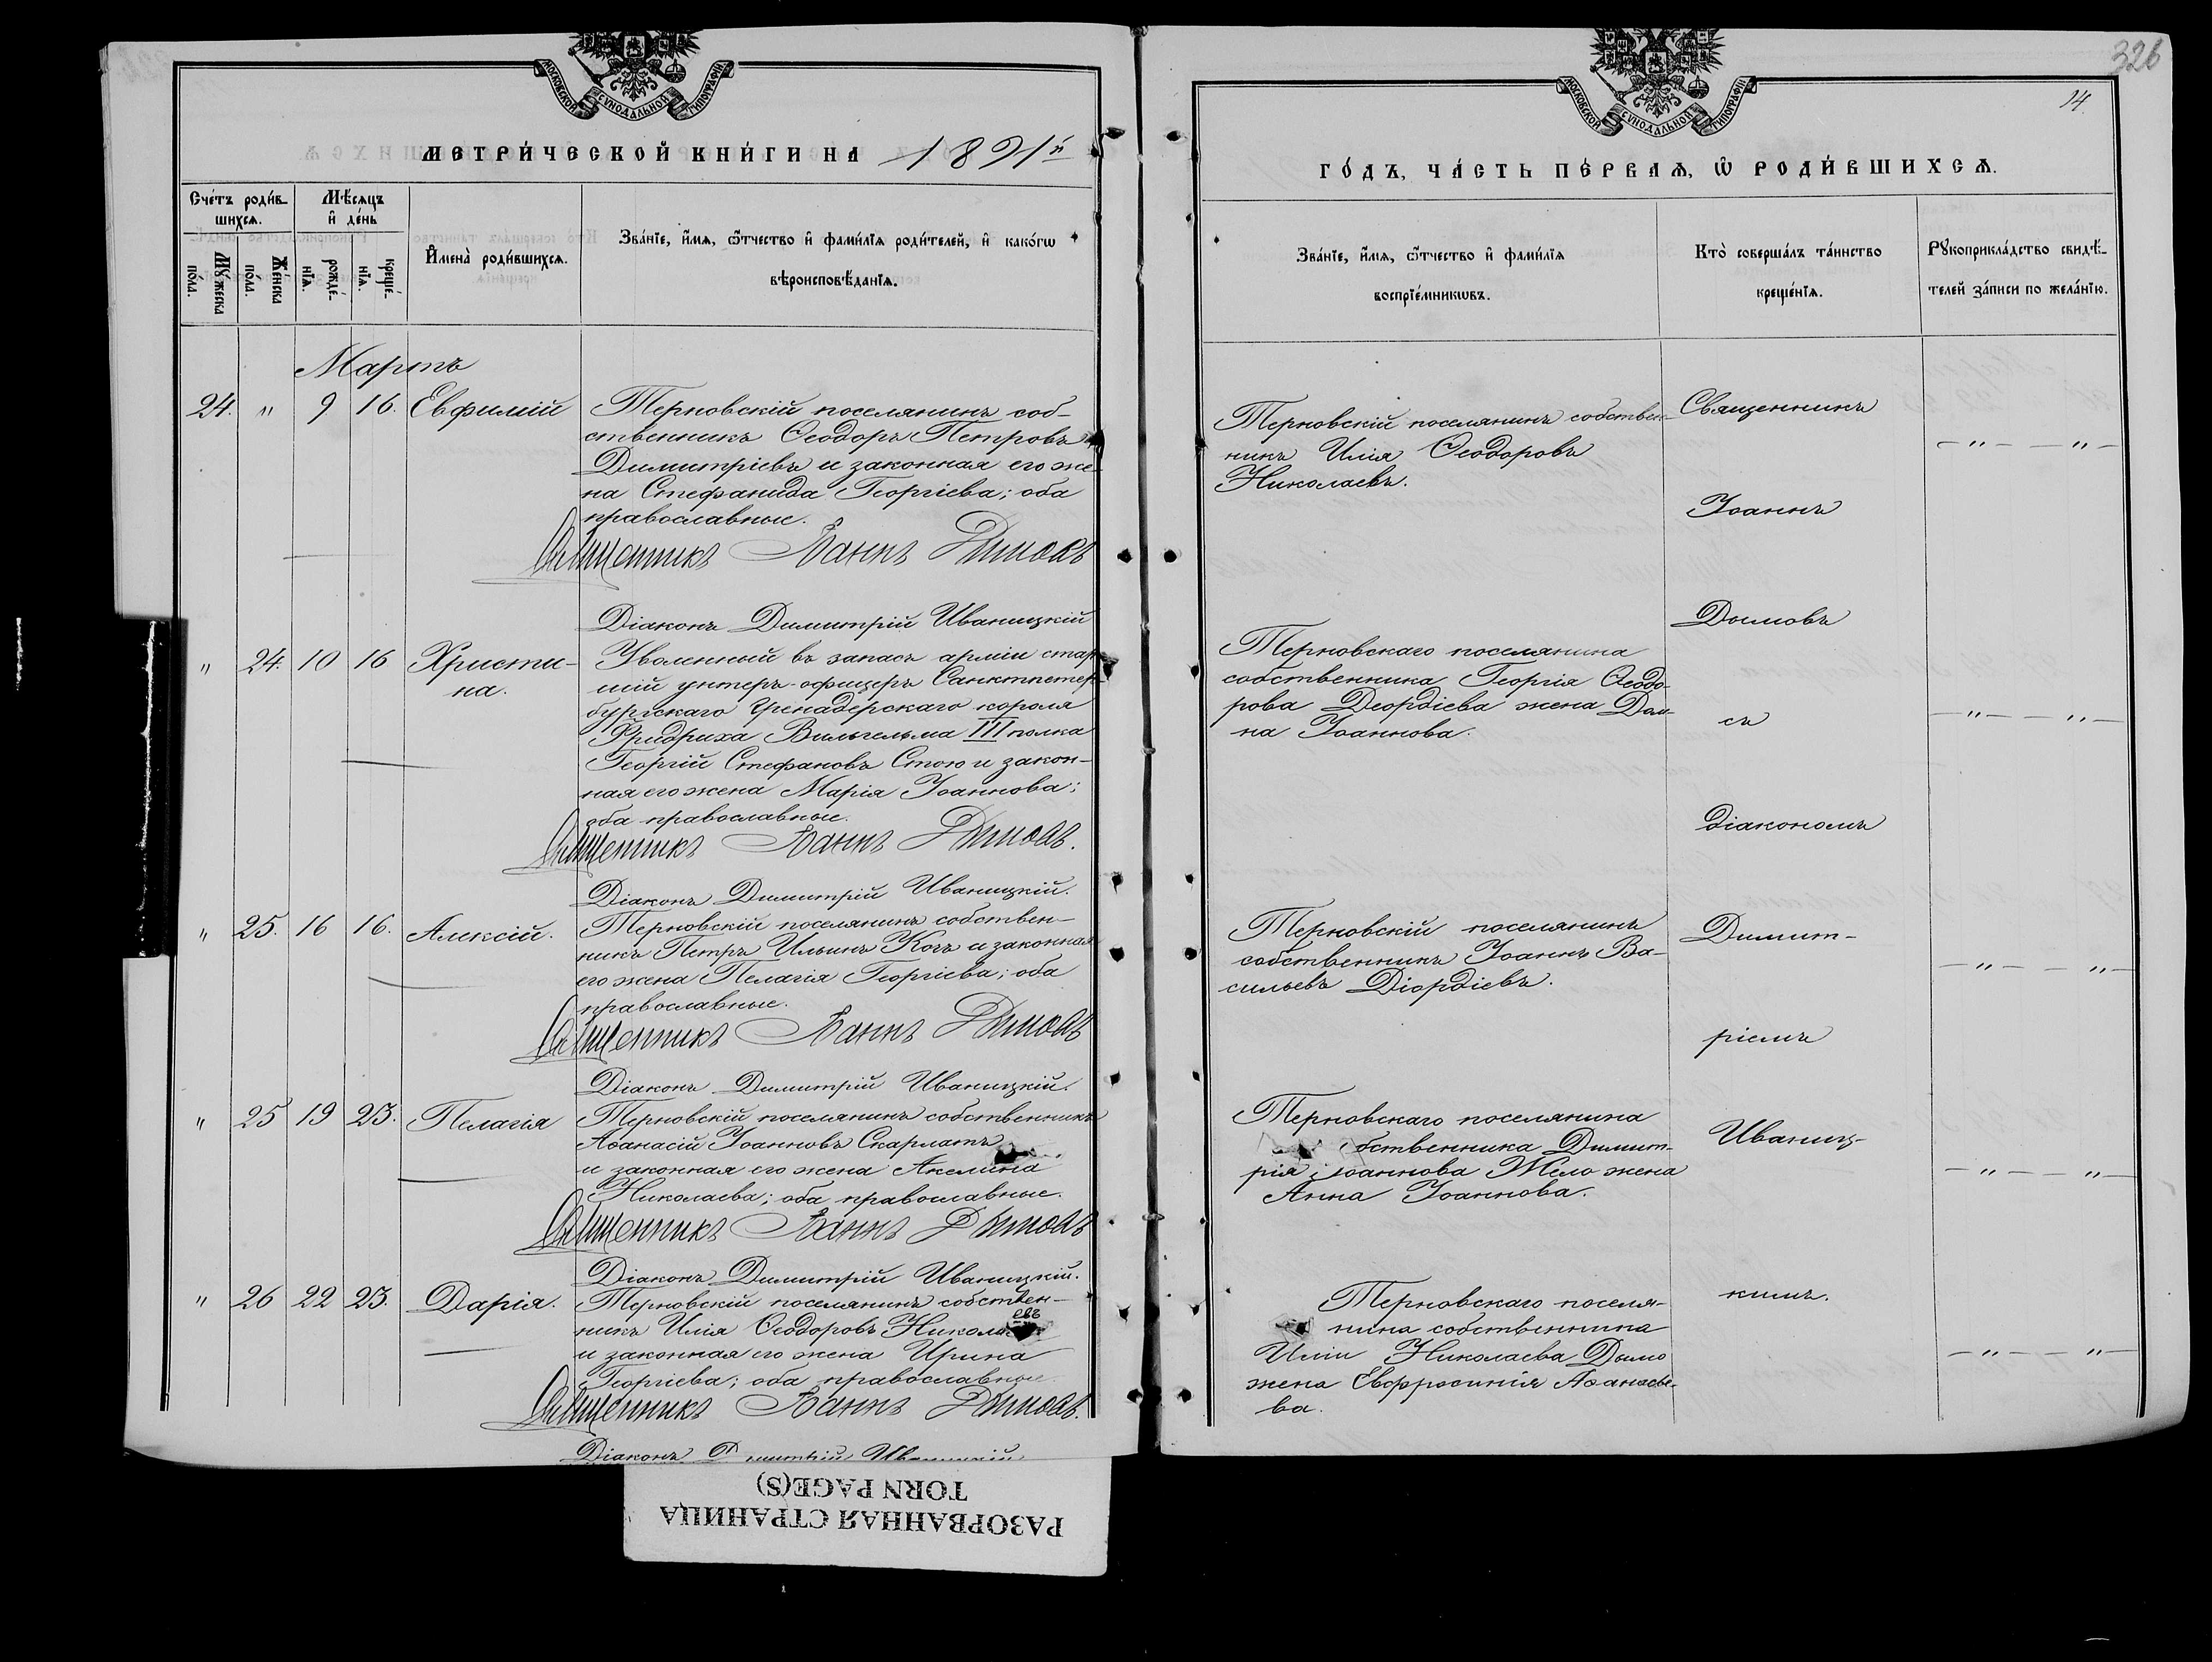 МОСКОВСКОЙ СѴНОДАЛЬНОЙ ТИПОГРАФІИ
МЕТРИ́ЧЕСКОЙ КНИ́ГИ НА 1891й
Сче́тъ роди́в-
шихсѧ.
Мѣ́сѧцъ
и҆ де́нь
Мꙋ́жеска
по́ла.
Же́нска
по́ла.
рожде́-
нїѧ.
креще́-
нїѧ.
И҆мена̀ роди́вшихсѧ.
Зва́нїе, и҆́мѧ, ѻ҆́тчество и҆ фами́лїѧ роди́телей, и҆ како́гѡ
вѣроисповѣ́данїѧ.
Мартъ
24. " 9 16. Евфимій
Терновскій поселянинъ соб-
ственникъ Ѳеодоръ Петровъ
Димитріевъ и законная его же-
на Стефанида Георгіева; оба
православные.
Священникъ Іоаннъ Дымовъ
Діаконъ Димитрій Иваницкій
" 24. 10 16 Христи-
на.
Уволенный въ запасъ арміи стар-
шій унтеръ-офицеръ Санктпетер-
бургскаго Гренадерскаго короля
Фридриха Вильгельма III полка
Георгій Стефановъ Стою и закон-
ная его жена Марія Іоаннова;
оба православные.
Священникъ Іоаннъ Дымовъ.
Діаконъ Димитрій Иваницкій.
" 25. 16 16. Алексій.
Терновскій поселянинъ собствен-
никъ Петръ Ильинъ Кочъ и законная
его жена Пелагія Георгіева; оба
православные.
Священникъ Іоаннъ Дымовъ
Діаконъ Димитрій Иваницкій.
" 25 19 23. Пелагія
Терновскій поселянинъ собственникъ
Аѳанасій Іоанновъ Скарлатъ
и законная его жена Акелина
Николаева; оба православные.
Священникъ Іоаннъ Дымовъ
Діаконъ Димитрій Иваницкій.
" 26 22 23. Дарія.
Терновскій поселянинъ собствен-
никъ Илія Ѳеодоровъ Николаевъ
и законная его жена Ирина
Георгіева; оба православные.
Священникъ Іоаннъ Дымовъ.
Діаконъ Димитрій Иваницкій
326
14.
МОСКОВСКОЙ СѴНОДАЛЬНОЙ ТИПОГРАФІИ
ГО́ДЪ, ЧА́СТЬ ПЕ́РВАѦ, Ѡ҆ РОДИ́ВШИХСѦ.
Зва́нїе, и҆́мѧ, ѻ҆́тчество и҆ фами́лїѧ
воспрїе́мникѡвъ.
Кто̀ соверша́лъ та́инство
креще́нїѧ.
Рꙋкоприкла́дство свидѣ́-
телей за́писи по жела́нїю.
Терновскій поселянинъ собствен-
никъ Илія Ѳеодоровъ
Николаевъ.
Священникъ
Іоаннъ
Дымовъ
Терновскаго поселянина
собственника Георгія Ѳеодо-
рова Деордіева жена Дом-
на Іоаннова.
съ
діакономъ
Терновскій поселянинъ
собственникъ Іоаннъ Ва-
сильевъ Діордіевъ.
Димит-
ріемъ
Терновскаго поселянина
собственника Димит-
рія Іоаннова Жело жена
Анна Іоаннова.
Иваниц-
Терновскаго поселя-
нина собственника
Иліи Николаева Дымо
жена Евфросинія Аѳанасье-
ва.
кимъ.
TORN PAGE(S)
РАЗОРВАННАЯ СТРАНИЦА